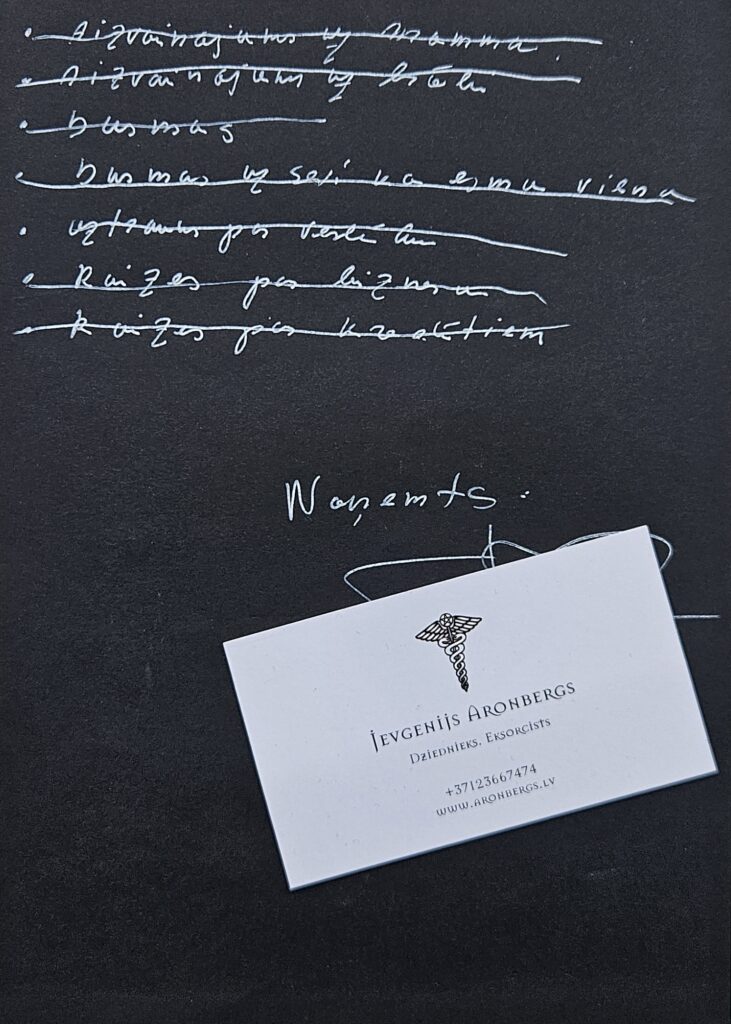 • Aizvainojums uz mamma.
• Aizvainojums uz brāli
• Dusmas
• Dusmas uz sevi ka esmu viena
• uztraukums par veselību
• Raizes par biznesu
• Raizes par kredītiem
Noņemts:
Jevgenijs Aronbergs
Dziednieks. Eksorcists
+37123667474
www.aronbergs.lv